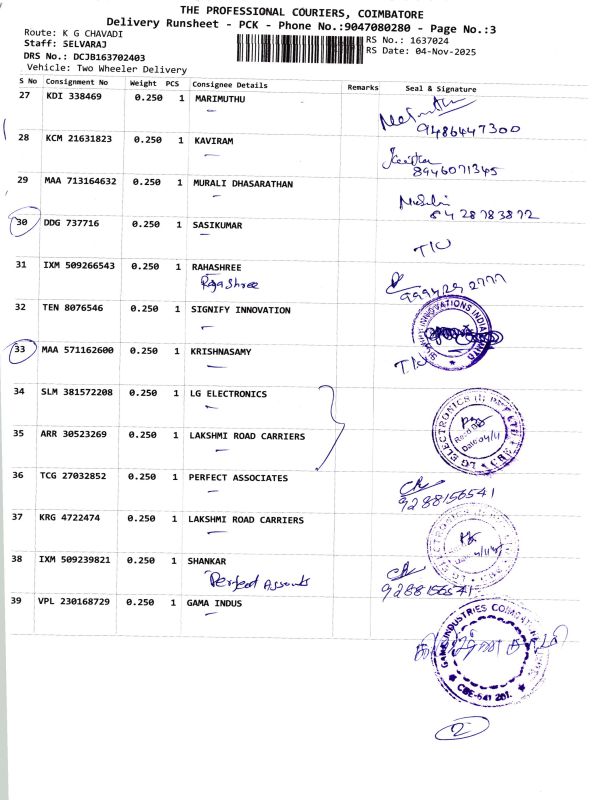 THE PROFESSIONAL COURIERS, COIMBATORE
Delivery Runsheet - PCK - Phone No.:9047080280 - Page No.:3
Route: K G CHAVADI
RS No.: 1637024
Staff: SELVARAJ
RS Date: 04-Nov-2025
DRS No.: DCJB163702403
Vehicle: Two Wheeler Delivery
S No Consignment No Weight PCS Consignee Details Remarks Seal & Signature
27 KDI 338469 0.250 1 MARIMUTHU
9486447300
28 KCM 21631823 0.250 1 KAVIRAM
8946071345
29 MAA 713164632 0.250 1 MURALI DHASARATHAN
8428783872
30 DDG 737716 0.250 1 SASIKUMAR
31 IXM 509266543 0.250 1 RAHASHREE
Raja Shree
32 TEN 8076546 0.250 1 SIGNIFY INNOVATION
INNOVATIONS INDIA
33 MAA 571162600 0.250 1 KRISHNASAMY
34 SLM 381572208 0.250 1 LG ELECTRONICS
LG ELECTRONICS
35 ARR 30523269 0.250 1 LAKSHMI ROAD CARRIERS
36 TCG 27032852 0.250 1 PERFECT ASSOCIATES
9288156541
37 KRG 4722474 0.250 1 LAKSHMI ROAD CARRIERS
38 IXM 509239821 0.250 1 SHANKAR
9288156541
39 VPL 230168729 0.250 1 GAMA INDUS
2